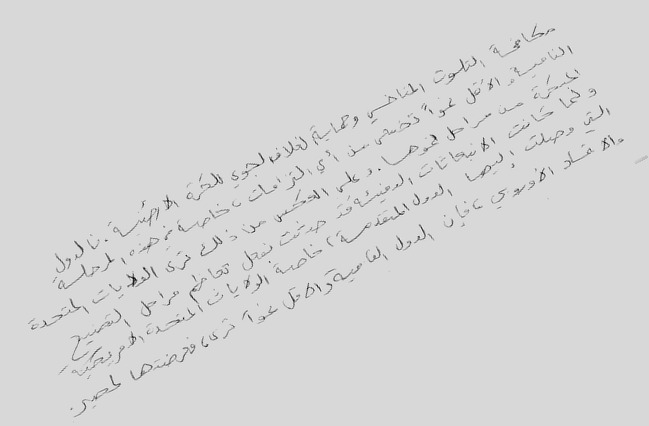 مكافحة التلوث المناخي وحماية الغلاف الجوي للكرة الارضية. فالدول
النامية والأقل نمواً تخشى من أي التزامات، خاصة في هذه المرحلة
المبكرة من مراحل نموها. وعلى العكس من ذلك ترى الولايات المتحدة
ولما كانت الانبعاثات الدفيئة قد حدثت بفعل تعاظم مراحل التصنيع
التي وصلت إليها الدول المتقدمة، خاصة الولايات المتحدة الامريكية
والاتحاد الأوروبي، فإن الدول النامية والاقل نمواً ترى،